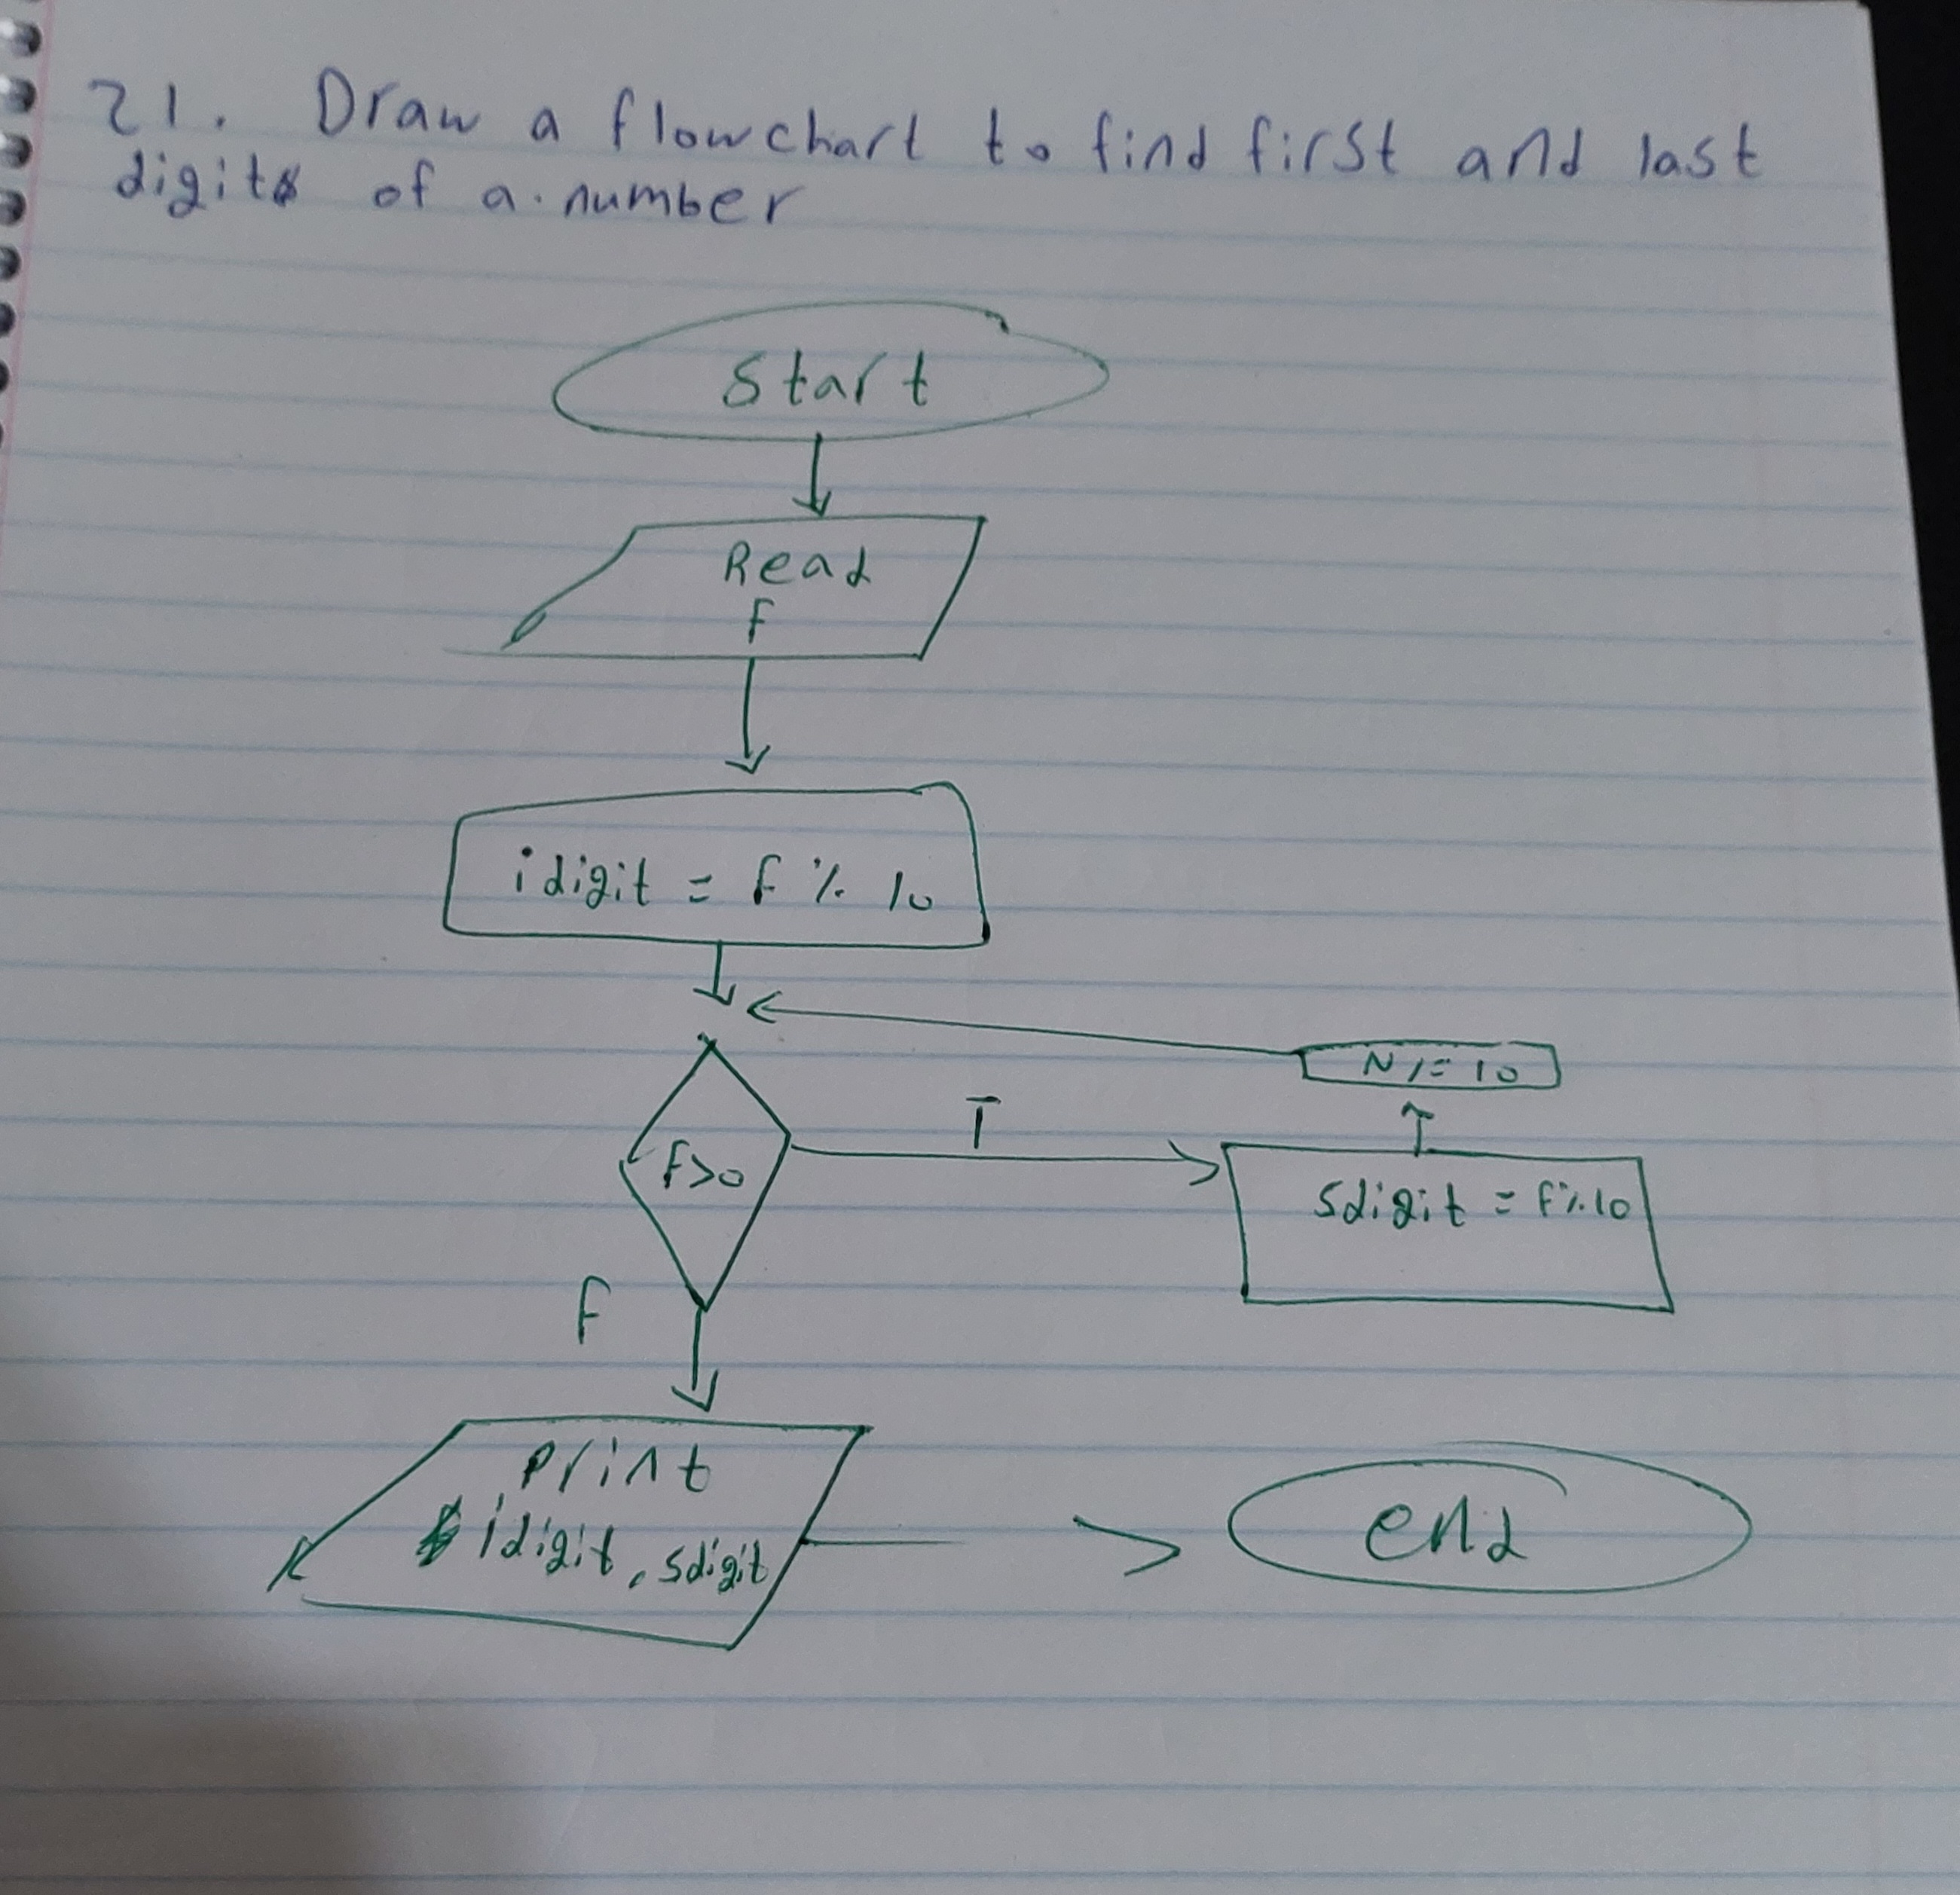 21. Draw a flowchart to find first and last
digits of a number
Start
Read
F
idigit = F % 10
N /= 10
T
F>0
sdigit = F%10
F
print
idigit, sdigit
end